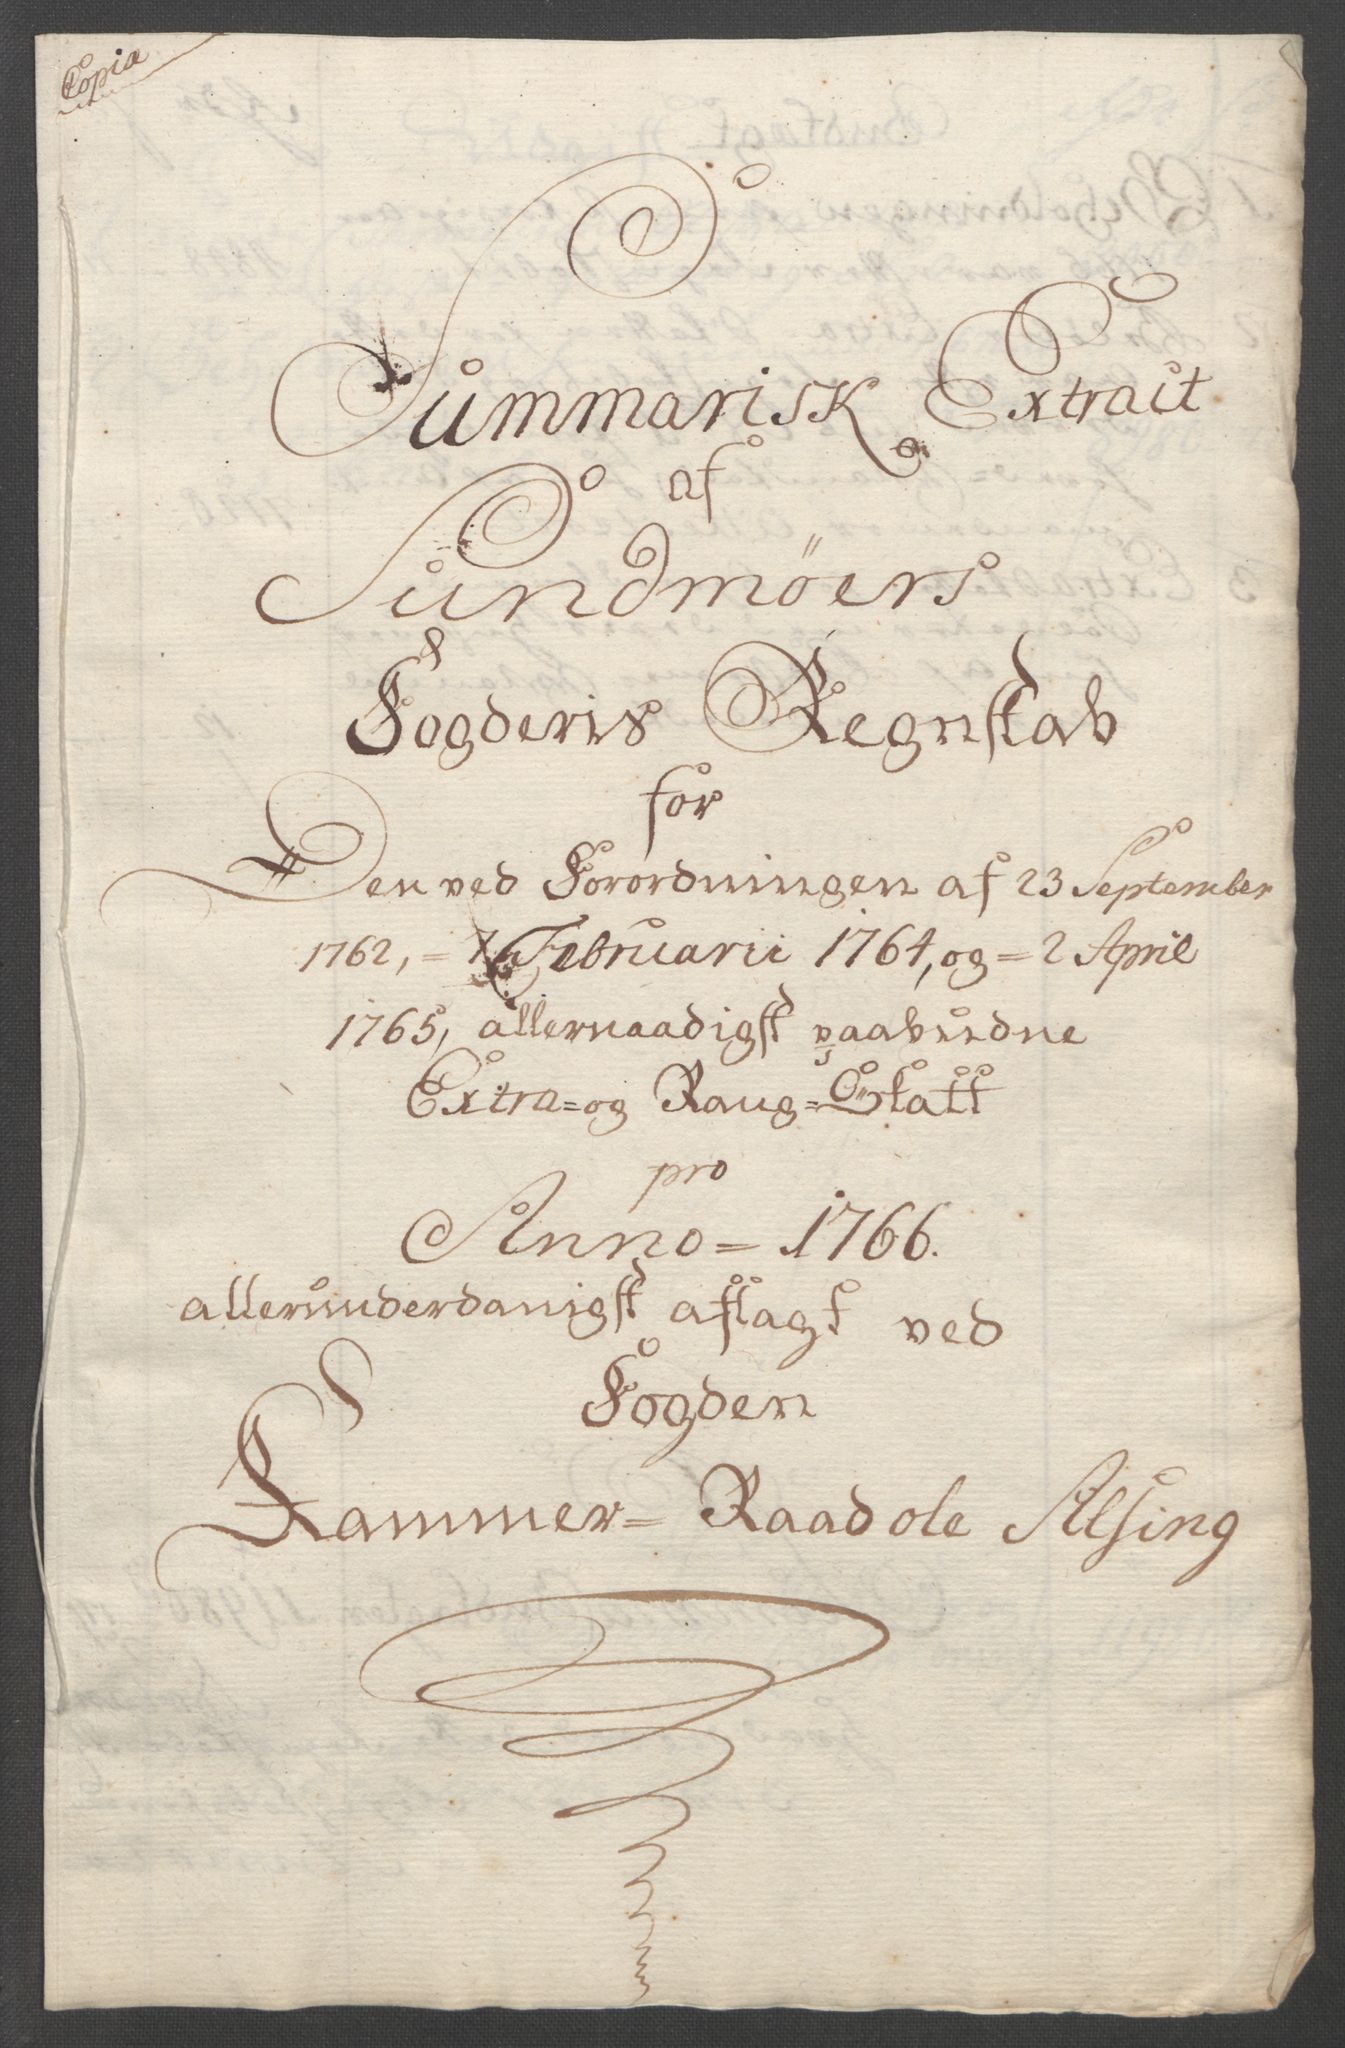 Copia
Summarisk Extrait
af
Sundmöers
Fogderis Regnskab
for
Den ved Forordningen af 23 September
1762, = Februarii 1764, og = 2 April
1765, allernaadigst paabudne
Extra= og Rang=Skatt
pro
Anno = 1766.
allerunderdanigst aflagt ved
Fogden
Kammer= Raad ole Alsing